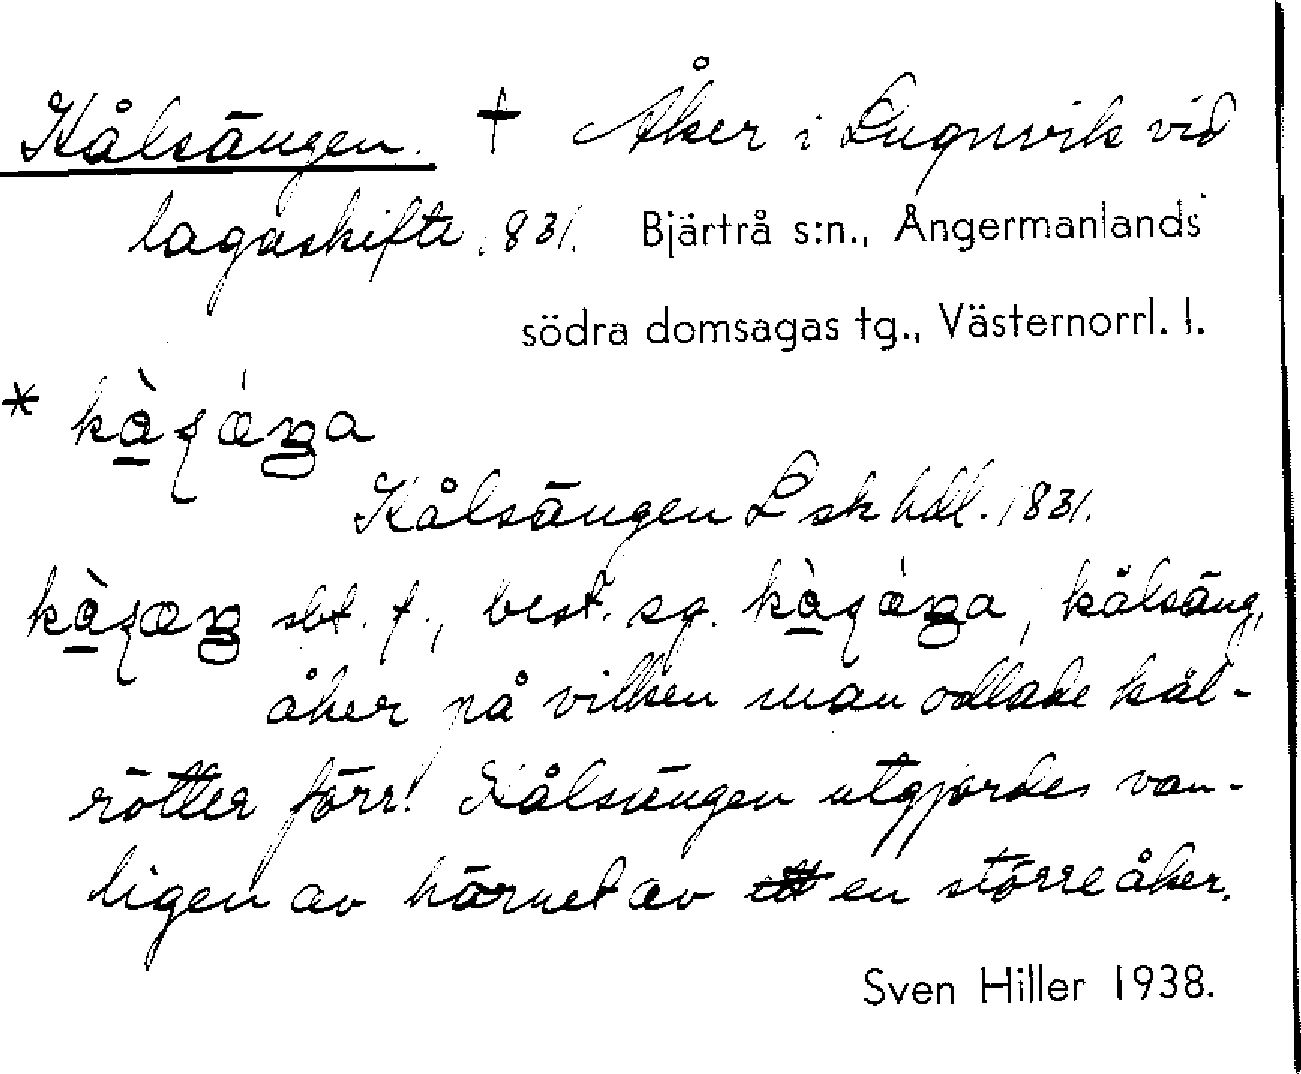 Kålsängen. † Åker i Lugnvik vid
lagaskifte 1831. Bjärtrå s:n., Ångermanlands
södra domsagas tg., Västernorrl. l.
*
Kålsängen L sk hdl. 1831.
sbt. f., best. sg. kålsäng,
åker på vilken man odlade kål-
rötter förr! Kålsängen utgjordes van-
ligen av hörnet av en större åker.
Sven Hiller 1938.